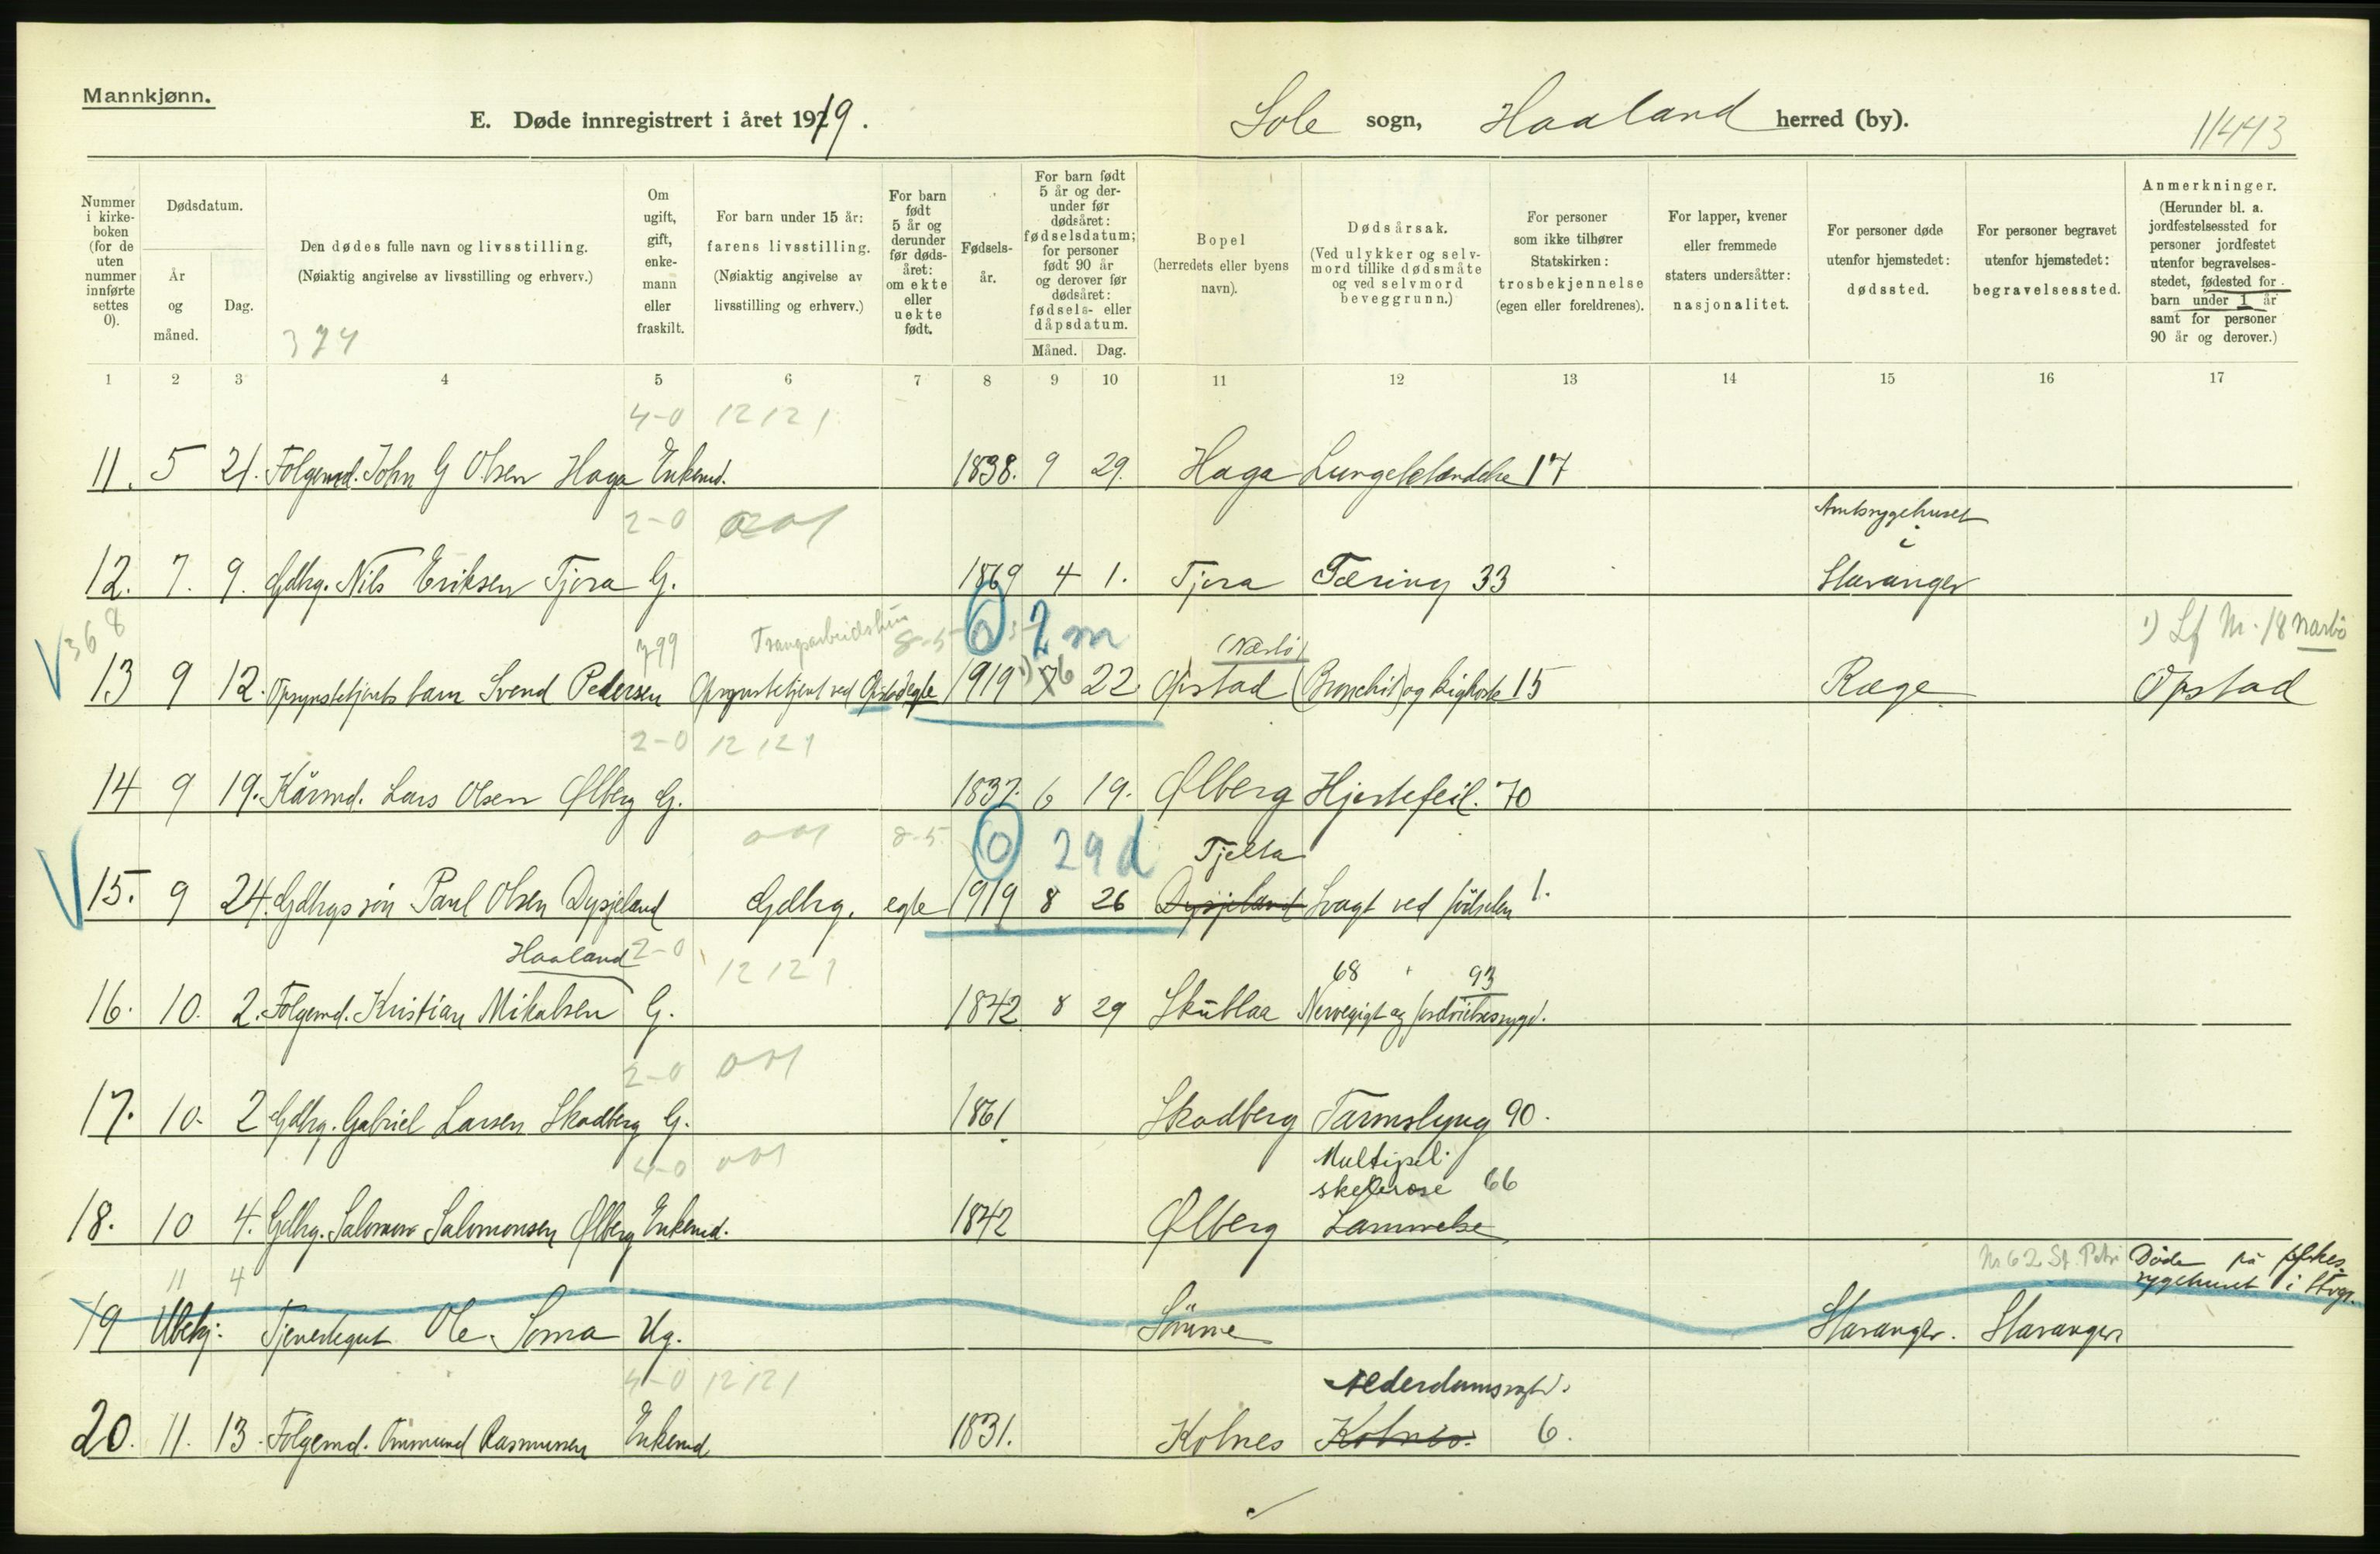 Mannkjønn.
E. Døde innregistrert i året 1919.
Sole sogn, Haaland herred (by).
11443
Nummer i kirkeboken (for de uten nummer innførte settes 0).
Dødsdatum.
År og måned.
Dag.
Den dødes fulle navn og livsstilling.
(Nøiaktig angivelse av livsstilling og erhverv.)
374
Om ugift, gift, enkemann eller fraskilt.
For barn under 15 år: farens livsstilling. (Nøiaktig angivelse av livsstilling og erhverv.)
For barn født 5 år og derunder før dødsåret: om ekte eller uekte født.
Fødselsår.
For barn født 5 år og derunder før dødsåret: fødselsdatum; for personer født 90 år og derover før dødsåret: fødsels- eller dåpsdatum.
Måned. Dag.
Bopel (herredets eller byens navn).
Dødsårsak. (Ved ulykker og selvmord tillike dødsmåte og ved selvmord beveggrunn.)
For personer som ikke tilhører Statskirken: trosbekjennelse (egen eller foreldrenes).
For lapper, kvener eller fremmede staters undersåtter: nasjonalitet.
For personer døde utenfor hjemstedet: dødssted.
For personer begravet utenfor hjemstedet: begravelsessted.
Anmerkninger. (Herunder bl. a. jordfestelsessted for personer jordfestet utenfor begravelsesstedet, fødested for barn under 1 år samt for personer 90 år og derover.)
1 2 3 4 5 6 7 8 9 10 11 12 13 14 15 16 17
4-0 12121
11. 5 21. Folgemd. John G Olsen Haga Enkemd. 1838. 9 29. Haga Lungebetændelse 17
2-0 001
Amtssygehuset i
12. 7. 9. Gdbrg. Nils Eriksen Tjora G. 1869 4 1. Tjora Tæring 33 Stavanger
368 799 Tvangsarbeidshus 8-5 0 : 2 m (Nærbö) 1) Lf Nr. 18 Nærbö
13 9 12. Opsynsbetjents barn Svend Pedersen Opsynsbetjent ved Opstad egte 1919 1) 6 22 Opstad (Bronchit) og kighoste 15 Ræge Opstad
2-0 12121
14 9 19. Kårmd. Lars Olsen Ølberg G. 1837. 6 19. Ølberg Hjertefeil. 70
001 8-5 0 29 d Tjelta
15. 9 24. Gdbrgs søn Paul Olsen Dysjeland Gdbrg. egte 1919 8 26 Dysjeland Svagt ved födselen 1.
Haaland 2-0 12121 68 93
16. 10. 2. Folgemd. Kristian Mikalsen G. 1842 8 29 Skiblaa Nervegigt og
2-0 001
17. 10. 2 Gdbrg. Gabriel Larsen Skadberg G. 1861 Skadberg Tarmslyng 90.
4-0 001 Multipel
sklerose 66
18. 10 4. Gdbrg. Salomon Salomonsen Ølberg Enkemd. 1842 Ølberg Lammelse
11 4 Nr 62 St. Petri Döde på
sygehuset i Stvgr.
19 Ubekj. Tjenestegut Ole Soma Ug. Sömme Stavanger. Stavanger
4-0 12121 Alderdomssvagh.
20. 11. 13. Folgemd. Rasmussen Enkemd 1831. Kolnes Kolnes. 6.